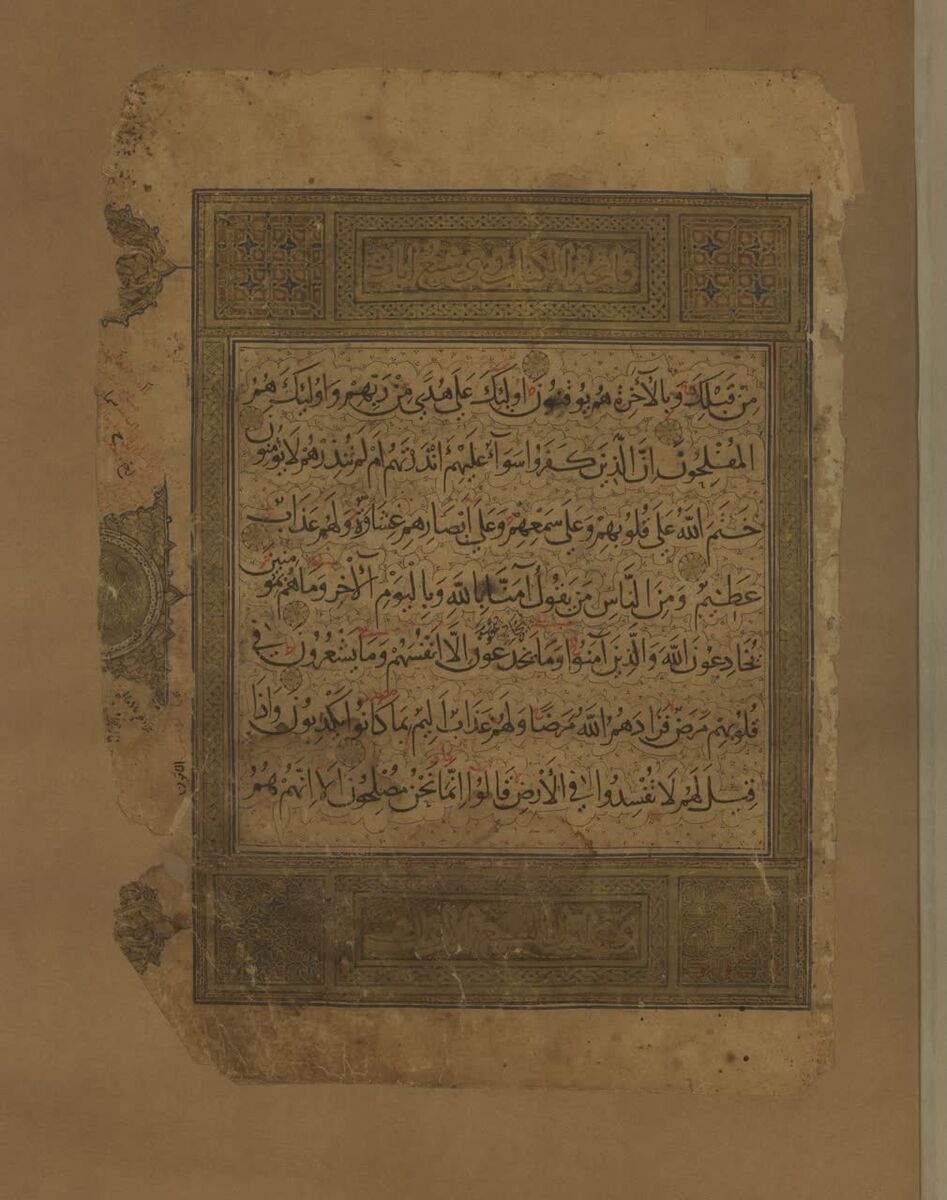 فاتحة الكتاب وهي سبع آيات
مِن قَبْلِكَ وَبِالْآخِرَةِ هُمْ يُوقِنُونَ اُولَئِكَ عَلَى هُدًى مِنْ رَبِّهِمْ وَاُولَئِكَ هُمُ
الْمُفْلِحُونَ اِنَّ الَّذِينَ كَفَرُوا سَوَآءٌ عَلَيْهِمْ ءَاَنْذَرْتَهُمْ اَمْ لَمْ تُنْذِرْهُمْ لَا يُؤْمِنُونَ
خَتَمَ اللَّهُ عَلَى قُلُوبِهِمْ وَعَلَى سَمْعِهِمْ وَعَلَى اَبْصَارِهِمْ غِشَاوَةٌ وَلَهُمْ عَذَابٌ
عَظِيمٌ وَمِنَ النَّاسِ مَنْ يَقُولُ آمَنَّا بِاللَّهِ وَبِالْيَوْمِ الْآخِرِ وَمَا هُمْ بِمُؤْمِنِينَ
يُخَادِعُونَ اللَّهَ وَالَّذِينَ آمَنُوا وَمَا يَخْدَعُونَ اِلَّا اَنْفُسَهُمْ وَمَا يَشْعُرُونَ فِي
قُلُوبِهِمْ مَرَضٌ فَزَادَهُمُ اللَّهُ مَرَضًا وَلَهُمْ عَذَابٌ اَلِيمٌ بِمَا كَانُوا يَكْذِبُونَ وَاِذَا
قِيلَ لَهُمْ لَا تُفْسِدُوا فِي الْاَرْضِ قَالُوا اِنَّمَا نَحْنُ مُصْلِحُونَ اَلَا اِنَّهُمْ هُمُ